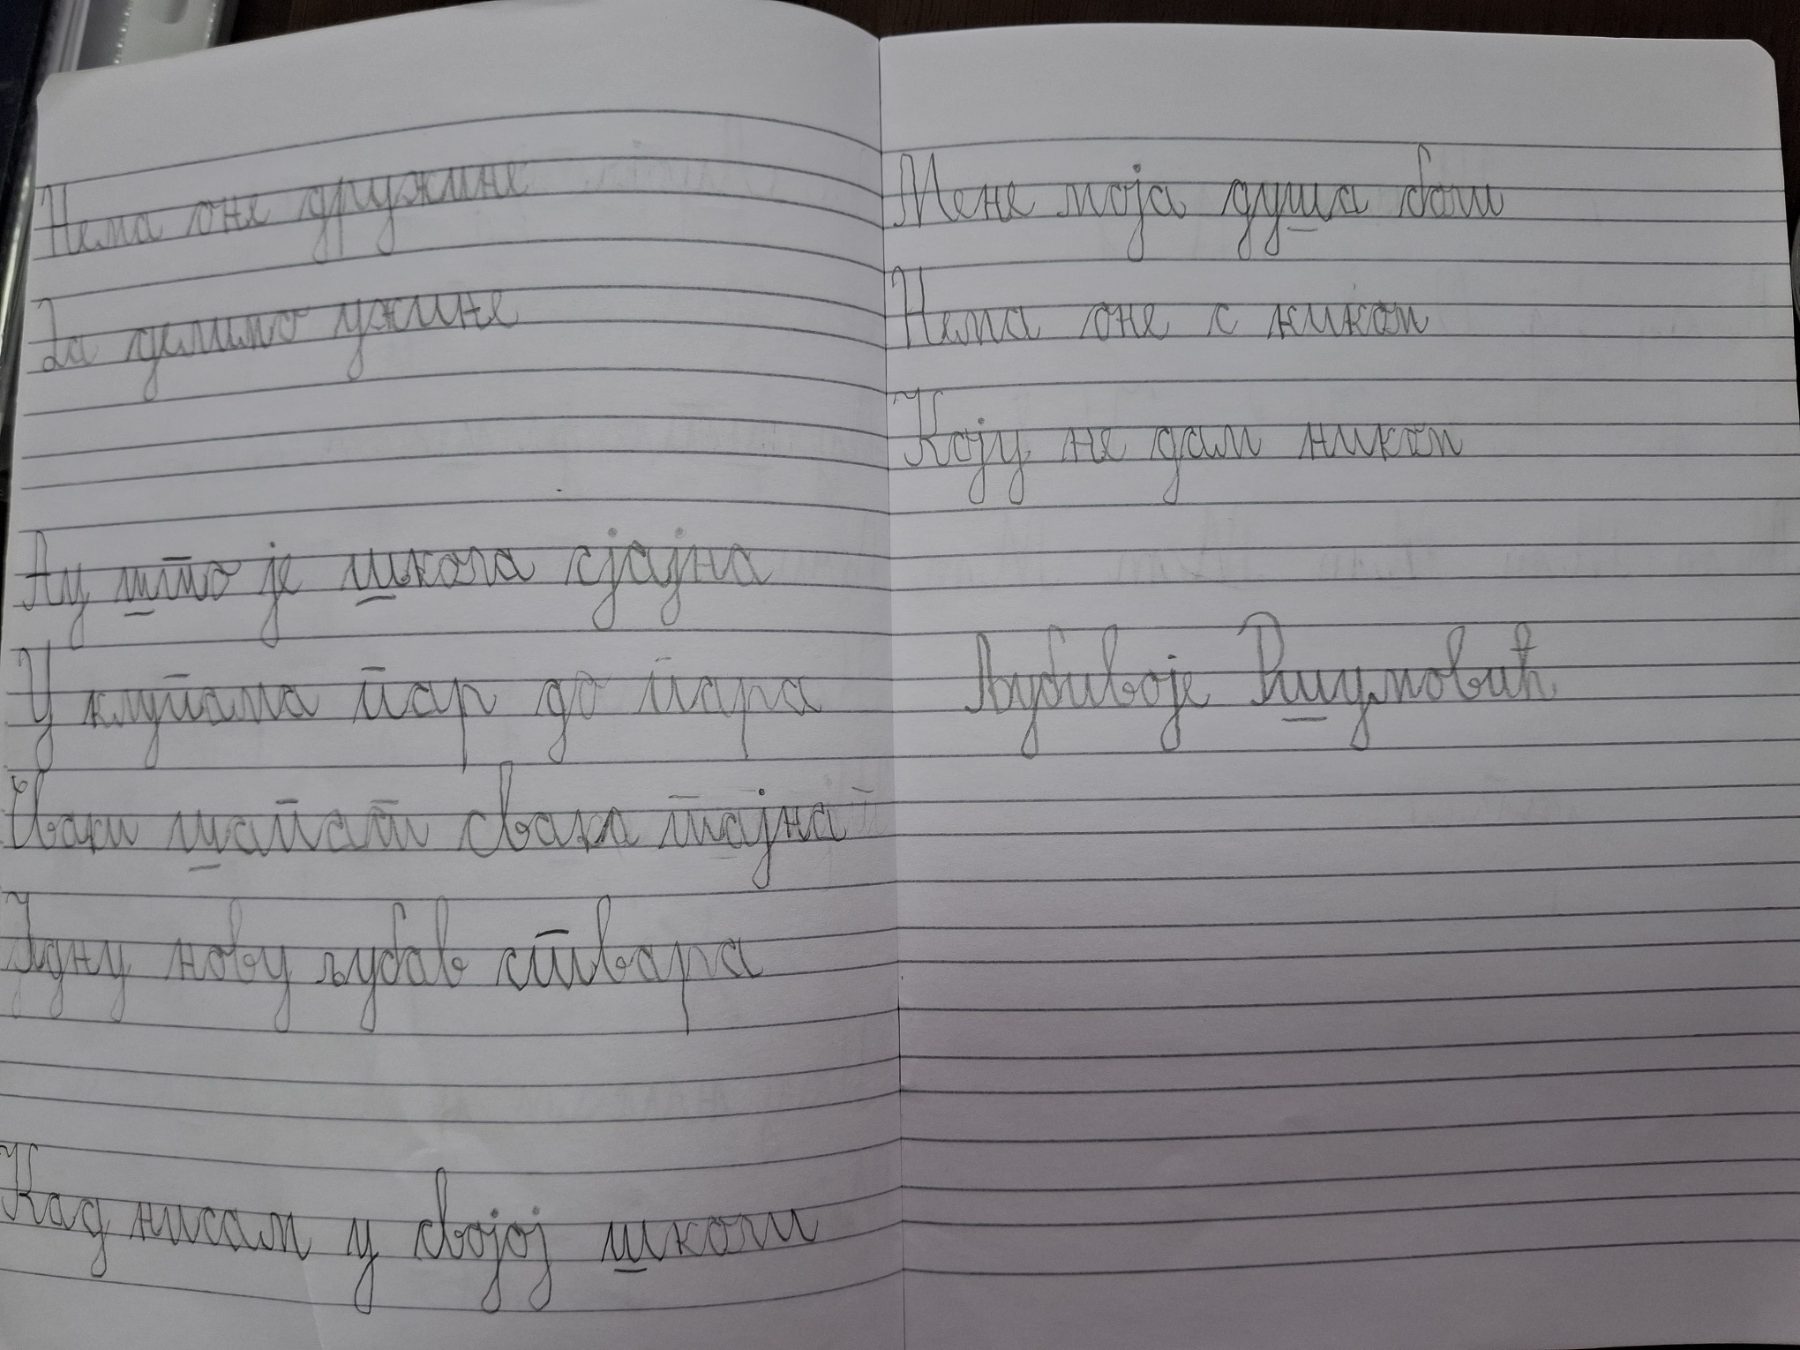 Нема оне дружине
За делимо ужине
Ау што је школа сјајна
У клупама пар до пара
Сваки шапат свака тајна
Једну нову љубав ствара
Кад нисам у својој школи
Мене моја душа боли
Нема оне с киком
Коју не дам ником
Љубивоје Ршумовић